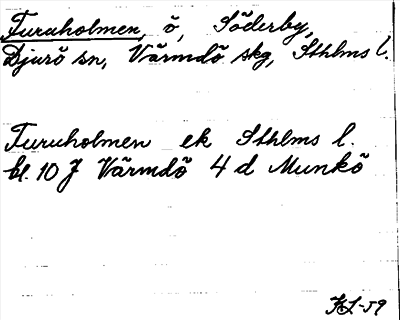 Furuholmen, ö, Söderby,
Djurö sn, Värmdö skg, Sthlms l.
Furuholmen ek Sthlms l.
bl. 10 J Värmdö 4 d Munkö
KL-59